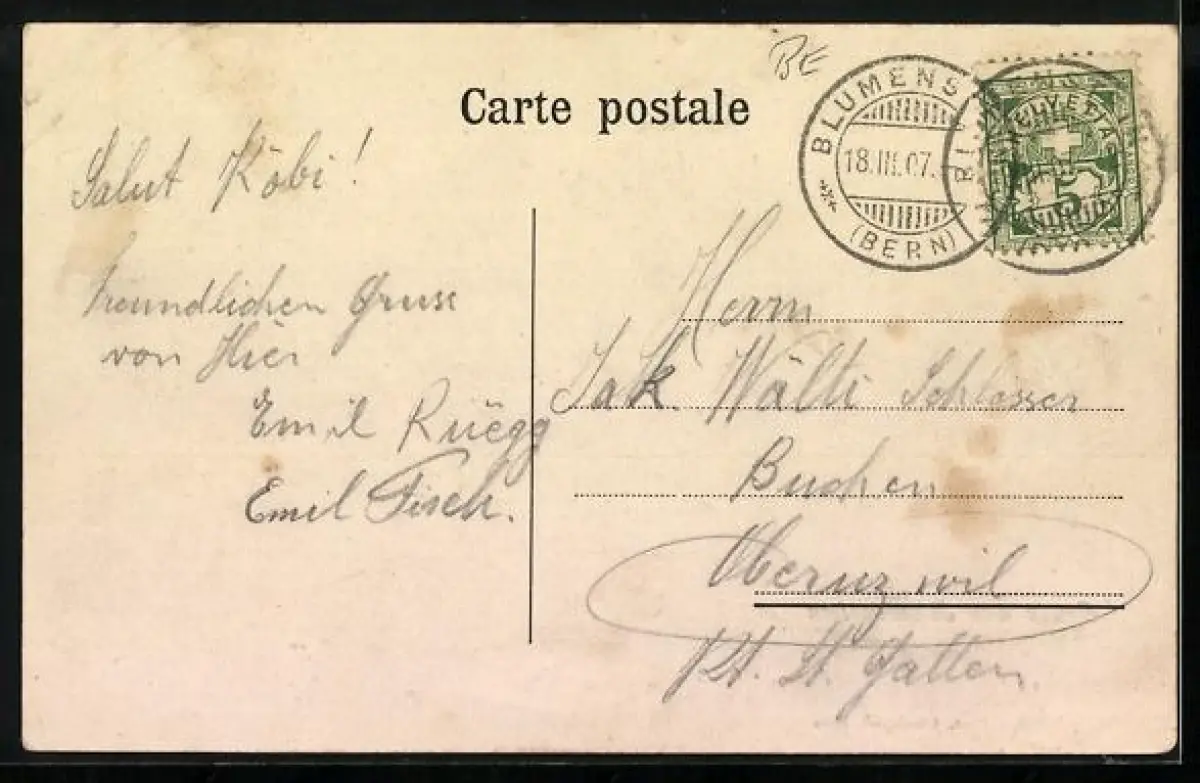 BE
Carte postale
BLUMENS
18.III.07.
(BERN)
HELVETIA
5
Salut Köbi!
freundlichen Gruss
von Hier
Emil Rüegg
Emil Fisch.
Herrn
Jak. Wälti Schlosser
Buchen
Oberuzwil
Kt. St. Gallen.